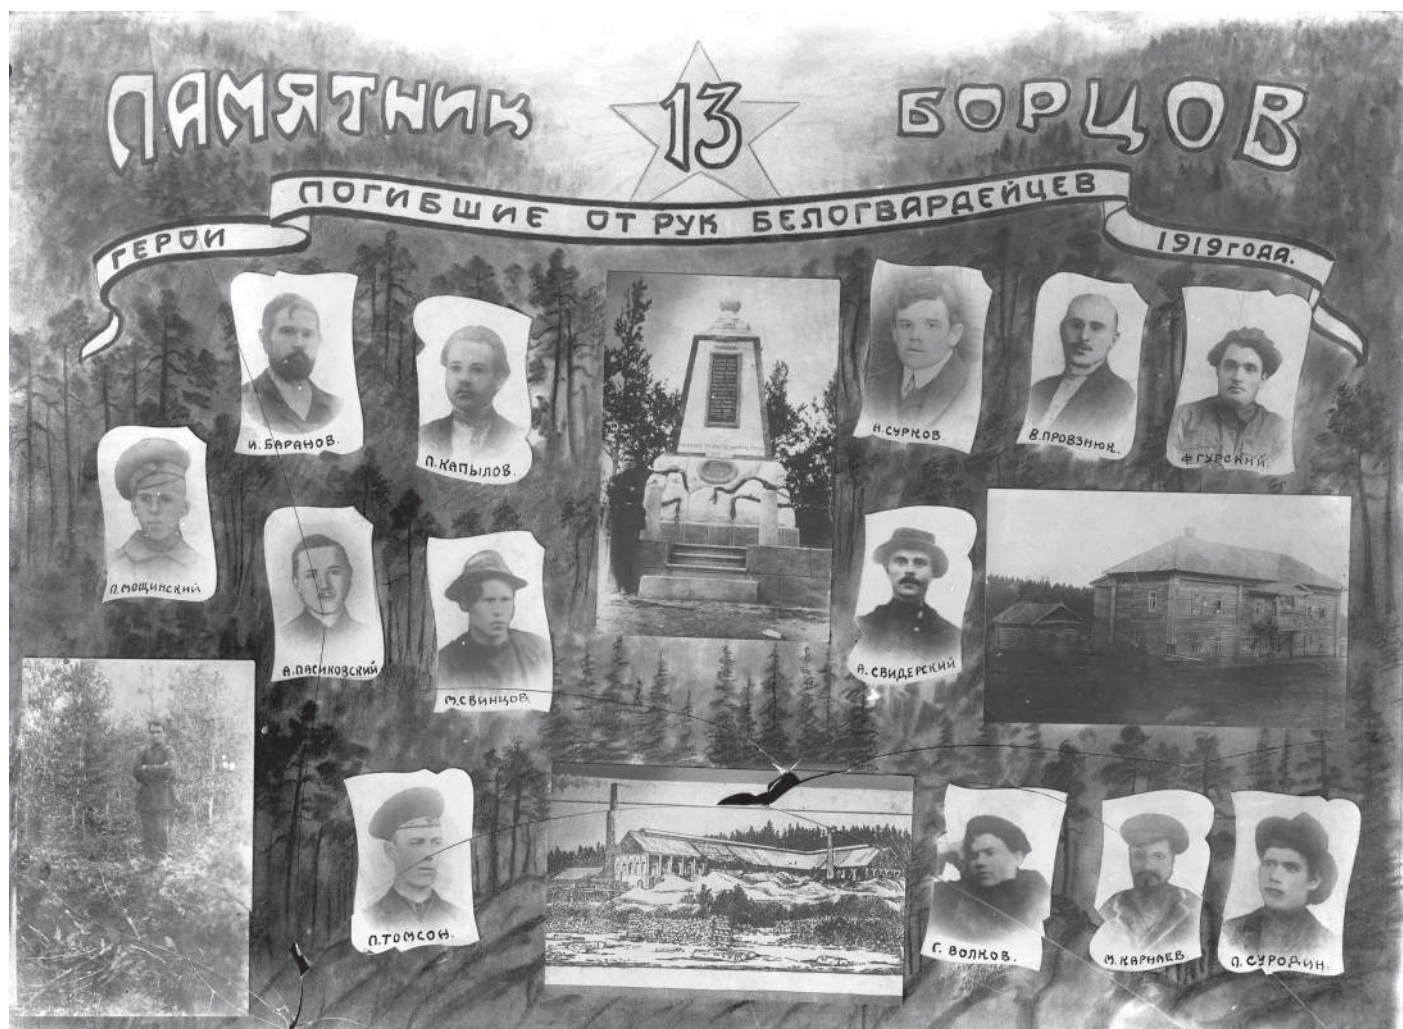 ПАМЯТНИК 13 БОРЦОВ
ГЕРОИ ПОГИБШИЕ ОТ РУК БЕЛОГВАРДЕЙЦЕВ 1919 ГОДА.
И. БАРАНОВ.
П. КАПЫЛОВ.
Н. СУРКОВ.
В. ПРОВЗНЮК.
Ф. ГУРСКИЙ.
П. МОЩИНСКИЙ
А. ПАСИКОВСКИЙ
М. СВИНЦОВ.
А. СВИДЕРСКИЙ
П. ТОМСОН.
Г. ВОЛКОВ.
М. КАРНАЕВ.
П. СУРОДИН.